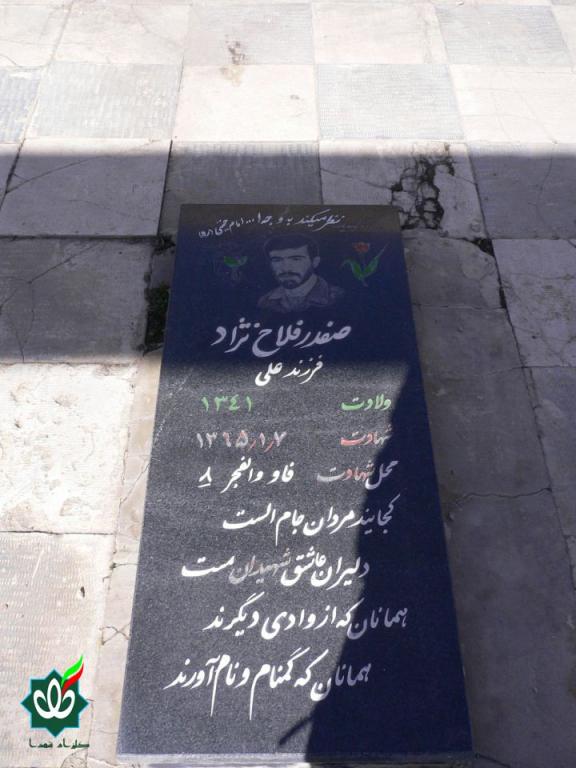 نظر میکند به وجه الله امام خمینی (ره)
صفدر فلاح نژاد
فرزند علی
ولادت ۱۳۴۱
شهادت ۱۳۶۵/۱/۷
محل شهادت فاو والفجر ۸
کجایند مردان جام الست
دلیران عاشق شهیدان مست
همانان که از وادی دیگرند
همانان که گمنام و نام آورند
گلزار شهدا